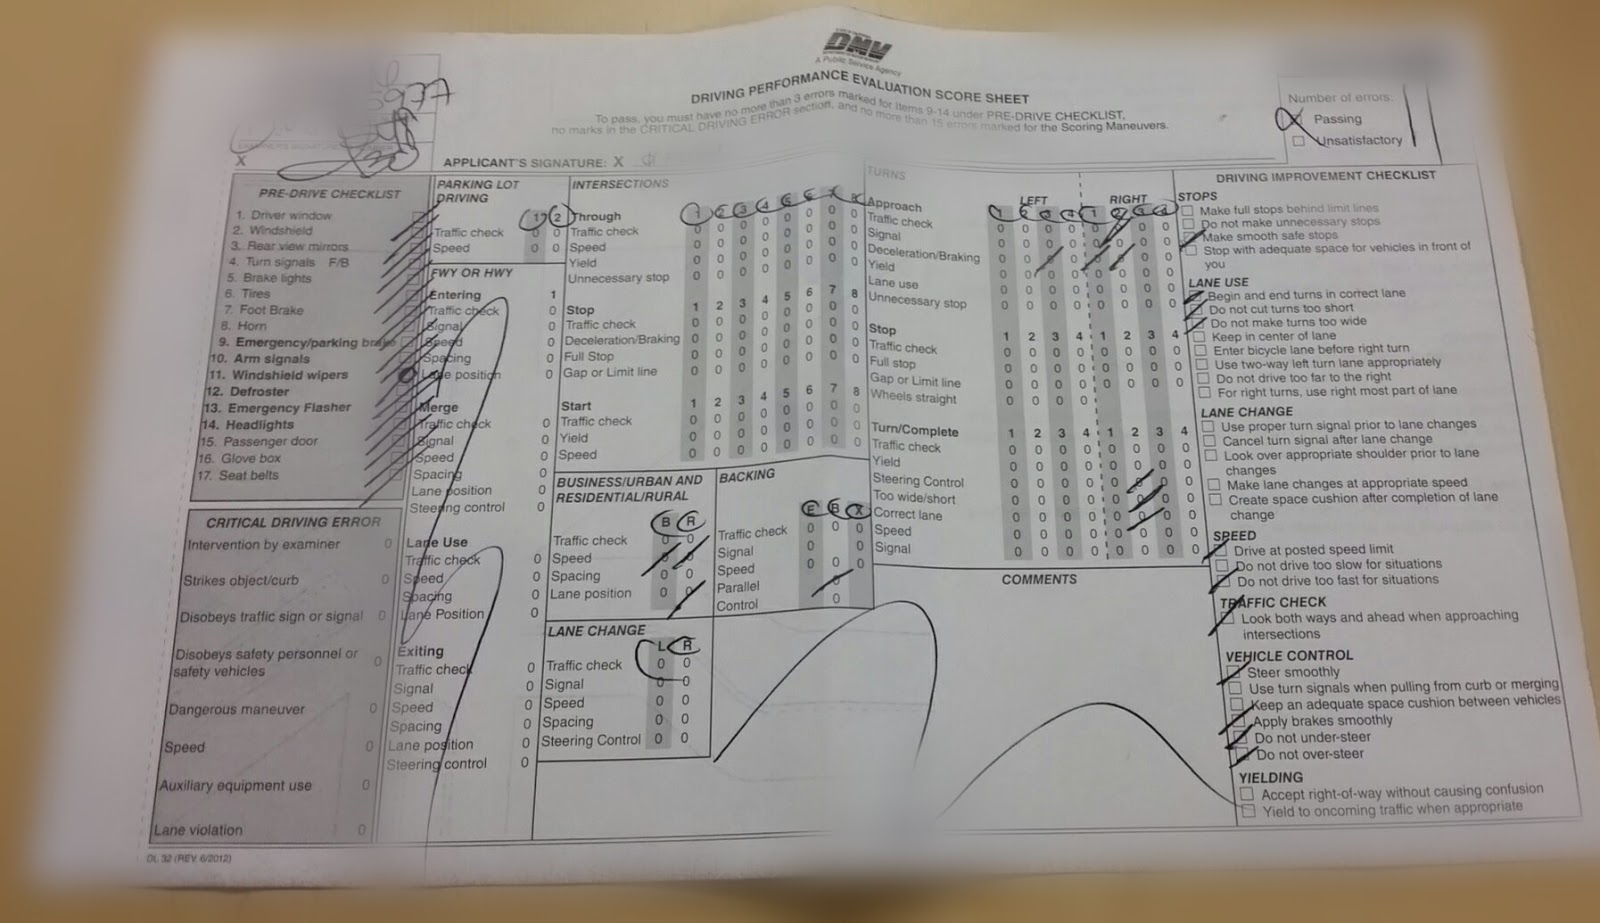 DMV
A Public Service Agency
DRIVING PERFORMANCE EVALUATION SCORE SHEET
To pass, you must have no more than 3 errors marked for Items 9-14 under PRE-DRIVE CHECKLIST,
no marks in the CRITICAL DRIVING ERROR section, and no more than 15 errors marked for the Scoring Maneuvers.
Number of errors:
Passing
Unsatisfactory
X
APPLICANT'S SIGNATURE: X
PRE-DRIVE CHECKLIST
1. Driver window
2. Windshield
3. Rear view mirrors
4. Turn signals F/B
5. Brake lights
6. Tires
7. Foot Brake
8. Horn
9. Emergency/parking brake
10. Arm signals
11. Windshield wipers
12. Defroster
13. Emergency Flasher
14. Headlights
15. Passenger door
16. Glove box
17. Seat belts
CRITICAL DRIVING ERROR
Intervention by examiner 0
Strikes object/curb 0
Disobeys traffic sign or signal 0
Disobeys safety personnel or
safety vehicles 0
Dangerous maneuver 0
Speed 0
Auxiliary equipment use 0
Lane violation 0
DL 32 (REV. 6/2012)
PARKING LOT
DRIVING 1 2
Traffic check 0 0
Speed 0 0
FWY OR HWY
Entering 1
Traffic check 0
Signal 0
Speed 0
Spacing 0
Lane position 0
Merge
Traffic check 0
Signal 0
Speed 0
Spacing 0
Lane position 0
Steering control 0
Lane Use
Traffic check 0
Speed 0
Spacing 0
Lane Position 0
Exiting
Traffic check 0
Signal 0
Speed 0
Spacing 0
Lane position 0
Steering control 0
INTERSECTIONS
Through
Traffic check 0 0 0 0 0 0 0 0
Speed 0 0 0 0 0 0 0 0
Yield 0 0 0 0 0 0 0 0
Unnecessary stop 0 0 0 0 0 0 0 0
Stop 1 2 3 4 5 6 7 8
Traffic check 0 0 0 0 0 0 0 0
Deceleration/Braking 0 0 0 0 0 0 0 0
Full Stop 0 0 0 0 0 0 0 0
Gap or Limit line 0 0 0 0 0 0 0 0
Start 1 2 3 4 5 6 7 8
Traffic check 0 0 0 0 0 0 0 0
Yield 0 0 0 0 0 0 0 0
Speed 0 0 0 0 0 0 0 0
BUSINESS/URBAN AND
RESIDENTIAL/RURAL
B R
Traffic check 0 0
Speed 0 0
Spacing 0 0
Lane position 0 0
LANE CHANGE
L R
Traffic check 0 0
Signal 0 0
Speed 0 0
Spacing 0 0
Steering Control 0 0
BACKING
B X
Traffic check 0 0 0
Signal 0 0
Speed 0 0 0
Parallel 0
Control 0
TURNS
LEFT RIGHT
Approach
Traffic check 0 0 0 0 0 0 0 0
Signal 0 0 0 0 0 0 0 0
Deceleration/Braking 0 0 0 0 0 0 0 0
Yield 0 0 0 0 0 0 0 0
Lane use 0 0 0 0 0 0 0 0
Unnecessary stop 0 0 0 0 0 0 0 0
Stop 1 2 3 4 1 2 3 4
Traffic check 0 0 0 0 0 0 0 0
Full stop 0 0 0 0 0 0 0 0
Gap or Limit line 0 0 0 0 0 0 0 0
Wheels straight 0 0 0 0
Turn/Complete 1 2 3 4 1 2 3 4
Traffic check 0 0 0 0 0 0 0 0
Yield 0 0 0 0 0 0 0 0
Steering Control 0 0 0 0 0 0 0 0
Too wide/short 0 0 0 0 0 0 0 0
Correct lane 0 0 0 0 0 0 0 0
Speed 0 0 0 0 0 0 0 0
Signal 0 0 0 0 0 0 0 0
COMMENTS
DRIVING IMPROVEMENT CHECKLIST
STOPS
Make full stops behind limit lines
Do not make unnecessary stops
Make smooth safe stops
Stop with adequate space for vehicles in front of
you
LANE USE
Begin and end turns in correct lane
Do not cut turns too short
Do not make turns too wide
Keep in center of lane
Enter bicycle lane before right turn
Use two-way left turn lane appropriately
Do not drive too far to the right
For right turns, use right most part of lane
LANE CHANGE
Use proper turn signal prior to lane changes
Cancel turn signal after lane change
Look over appropriate shoulder prior to lane
changes
Make lane changes at appropriate speed
Create space cushion after completion of lane
change
SPEED
Drive at posted speed limit
Do not drive too slow for situations
Do not drive too fast for situations
TRAFFIC CHECK
Look both ways and ahead when approaching
intersections
VEHICLE CONTROL
Steer smoothly
Use turn signals when pulling from curb or merging
Keep an adequate space cushion between vehicles
Apply brakes smoothly
Do not under-steer
Do not over-steer
YIELDING
Accept right-of-way without causing confusion
Yield to oncoming traffic when appropriate